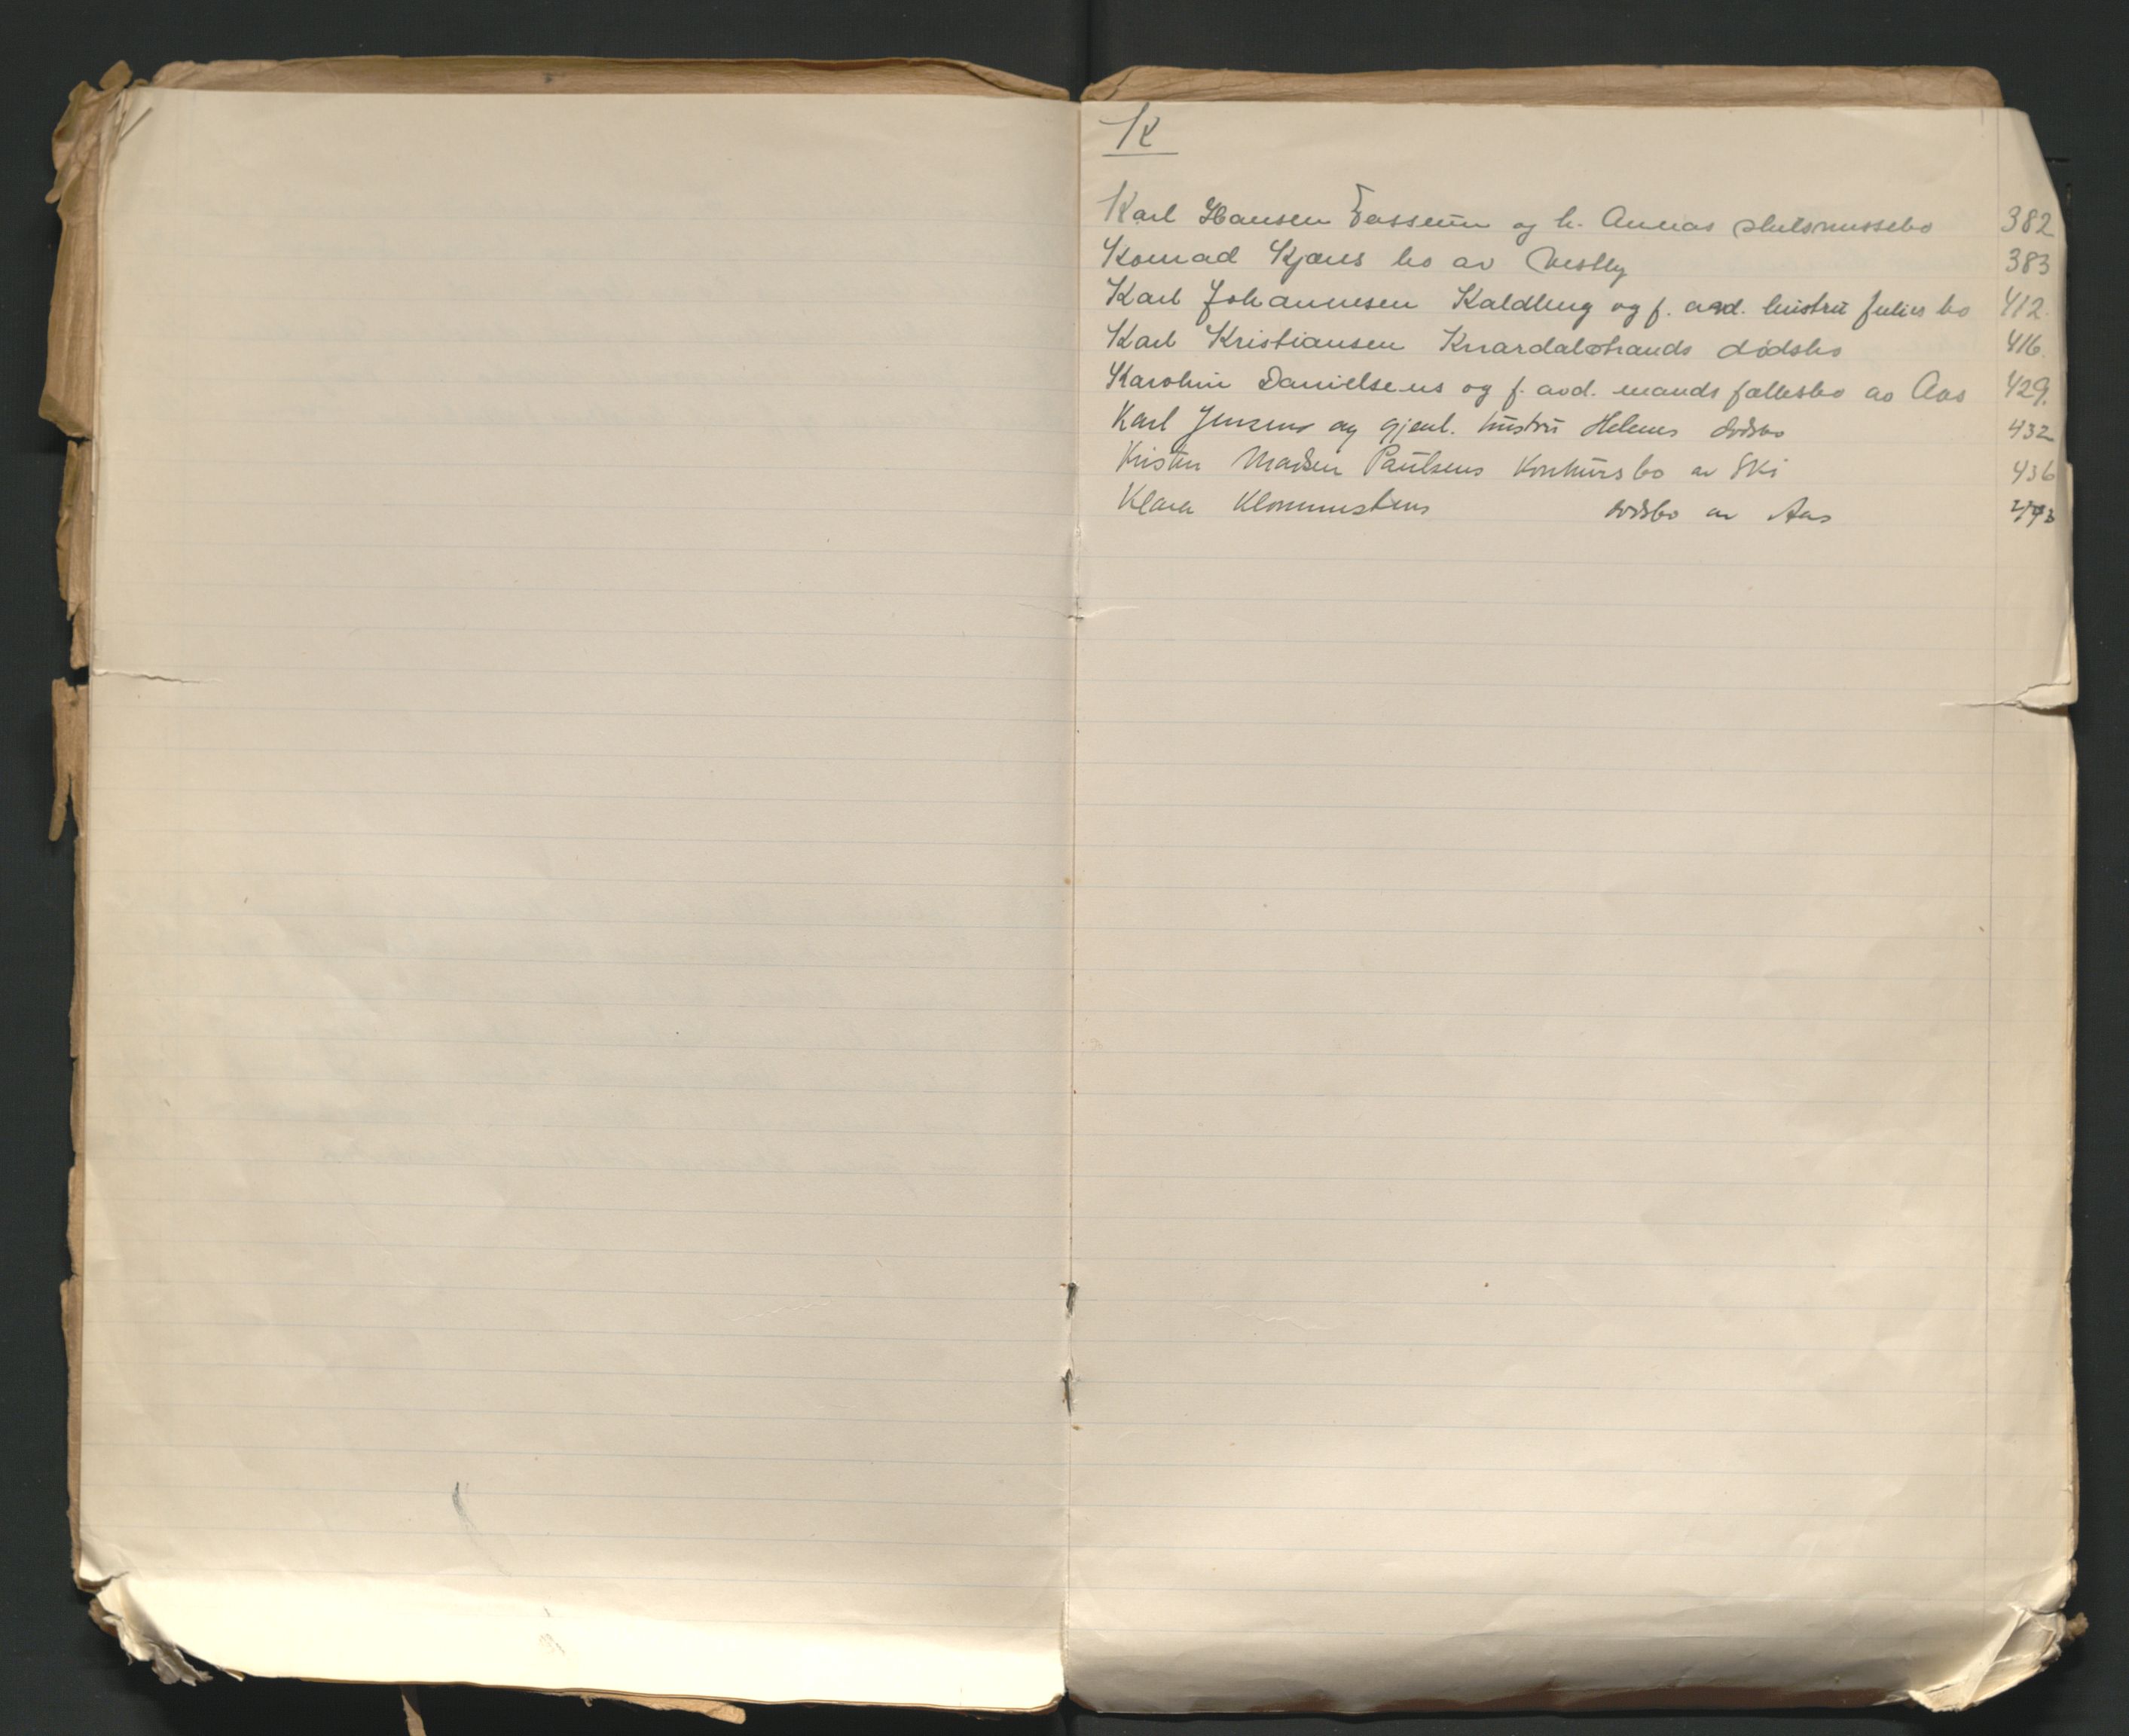 K
Karl Hansen Fosserin og h. Annas skilsmissebo 382
Konrad Kjærs bo av Vestby 383
Karl Johannesen Kaldberg og f. avd. hustru Julies bo 412.
Karl Kristiansen Knardalstrands dødsbo 416.
Karoline Danielsens og f. avd. mands fællesbo av Aas 429.
Karl Jensens og gjenl. hustru Helenes dødsbo 432
Kristen Madsen Paulsens Konkursbo av Ski 436
Klara dødsbo av Aas